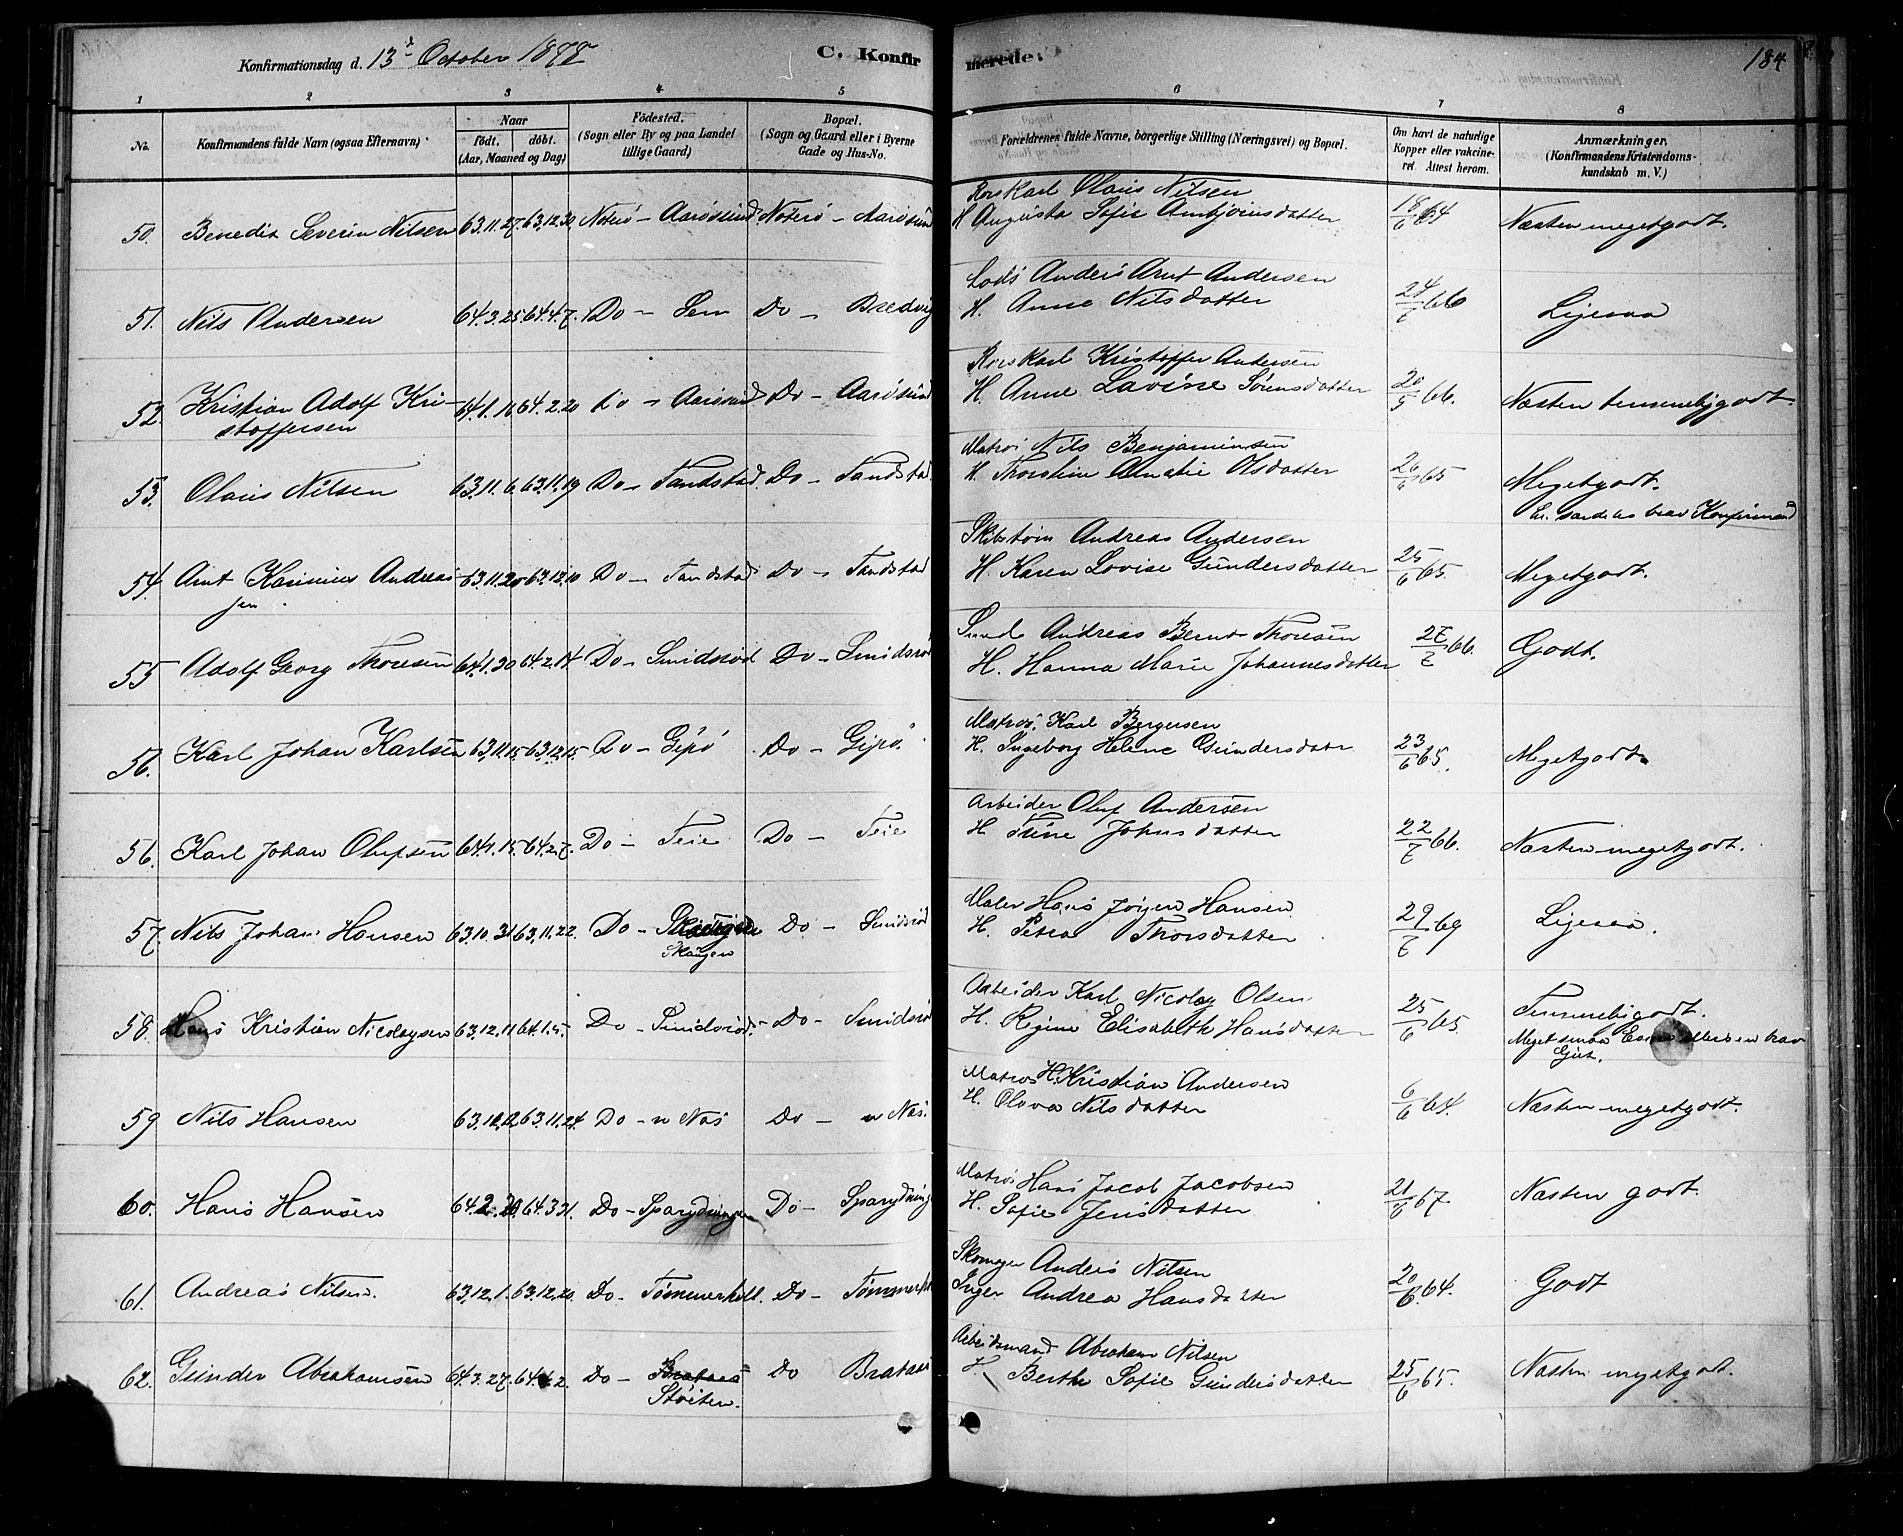 Konfirmationsdag d. 13d October 1878 C. Konfirmerede: 184
1 2 3 4 5 6 7 8
No. Konfirmandens fulde Navn (ogsaa Efternavn) Naar født, døbt. (Aar, Maaned og Dag) Fødested. (Sogn eller By og paa Landet tillige Gaard) Bopæl. (Sogn og Gaard eller i Byerne Gade og Hus-No. Forældrenes fulde Navne, borgerlige Stilling (Næringsvei) og Bopæl. Om havt de naturlige Kopper eller vakcineret. Attest herom. Anmærkninger. (Konfirmandens Kristendomskundskab m. V.)
50. Benedik Severin Nilsen 63.11.27. 63.12.30 Nøterø - Aarøsund. Nøterø - Aarøsun Rorskarl Olaus Nilsen
H Augusta Sofie Arnbjørnsdatter 18/6 64 Næsten megetgodt.
51. Nils Andersen 64.3.25 64.4.7. Do - Sem Do - Bredvig Lods Anders Arnt Andersen
H. Anne Nilsdatter 24/7 66 Ligesaa
52. Kristian Adolf Kri-
stoffersen 64.1.16 64.2.20 Do - Aarøsund Do - Aarøsund Rorskarl Kristoffer Andersen
H. Anne Lavine Sørensdatter 20/5 66. Næsten temmeligodt.
53. Olaus Nilsen 63.11.6. 63.11.19 Do - Tandstad. Do - Tandstad. Matros Nils Benjaminsen
H. Thorstine Amalie Olsdatter 26/6 65 Megetgodt.
brav Konfirmand
54. Arnt Kasinius Andreas-
sen. 63.11.20 63.12.10 Do - Tandstad Do - Tandstad Skibstøm Andreas Andersen
H. Karen Lovise Gundersdatter 25/6 65. Megetgodt.
55 Adolf Georg Thoresen 64.1.20 64.2.14. Do - Smidsrød Do - Smidsrø Andreas Bernt Thoresen
H. Hanna Marie Johannesdatter 27/7 66. Godt.
56. Karl Johan Karlsen 63.11.15. 63.12.15. Do - Gipø. Do - Gipø. Matros. Karl Bergersen
H. Ingeborg Helene Gundersdatr 23/6 65. Megetgodt.
56. Karl Johan Olufsen 64.1.15. 64.2.7. Do - Teie Do - Teie Arbeider Oluf Andersen
H. Trine Johnsdatter 22/7 66. Næsten megetgodt.
57. Nils Johan Hansen 63.10.31 63.11.22. Do - Skaugen Do - Smidsrød Maler Hans Jørgen Hansen
H. Petra Thorsdatter 29/7 69 Ligesaa.
58. Hans Kristian Nicolaysen 63.12.11 64.1.5. Do - Smidsrød. - Do - Smidsrø Arbeider Karl Nicolay Olsen
H. Regine Elisabeth Hansdatter 25/6 65. Temmeligodt.
Meget smaa Evner ellers en brav
Gut.
59 Nils Hansen 63.10.12. 63.11.24. Do - n Næs Do - n Næs. Matros H. Kristian Andersen
H. Olava Nilsdatter 6/6 64. Næsten megetgodt.
60. Hans Hansen 64.2.20. 64.3.31. Do - Do - Matros Hans Jacob Jacobsen
H. Sofie Jensdatter 21/6 67. Næsten godt
61. Andreas Nilsen. 63.12.1. 63.12.20. Do - Tømmerholt. Do - Tømmerh Skomager Anders Nilsen
Inger Andrea Hansdatter 20/6 64. Godt
62. Gunder Abrahamsen 64.3.27. 64.4.2. Do - Brataas
Støiten. Do Brataas Arbeidsmand Abraham Nilsen
H. Berthe Sofie Gundersdatter 25/6 65. Næsten megetgodt.